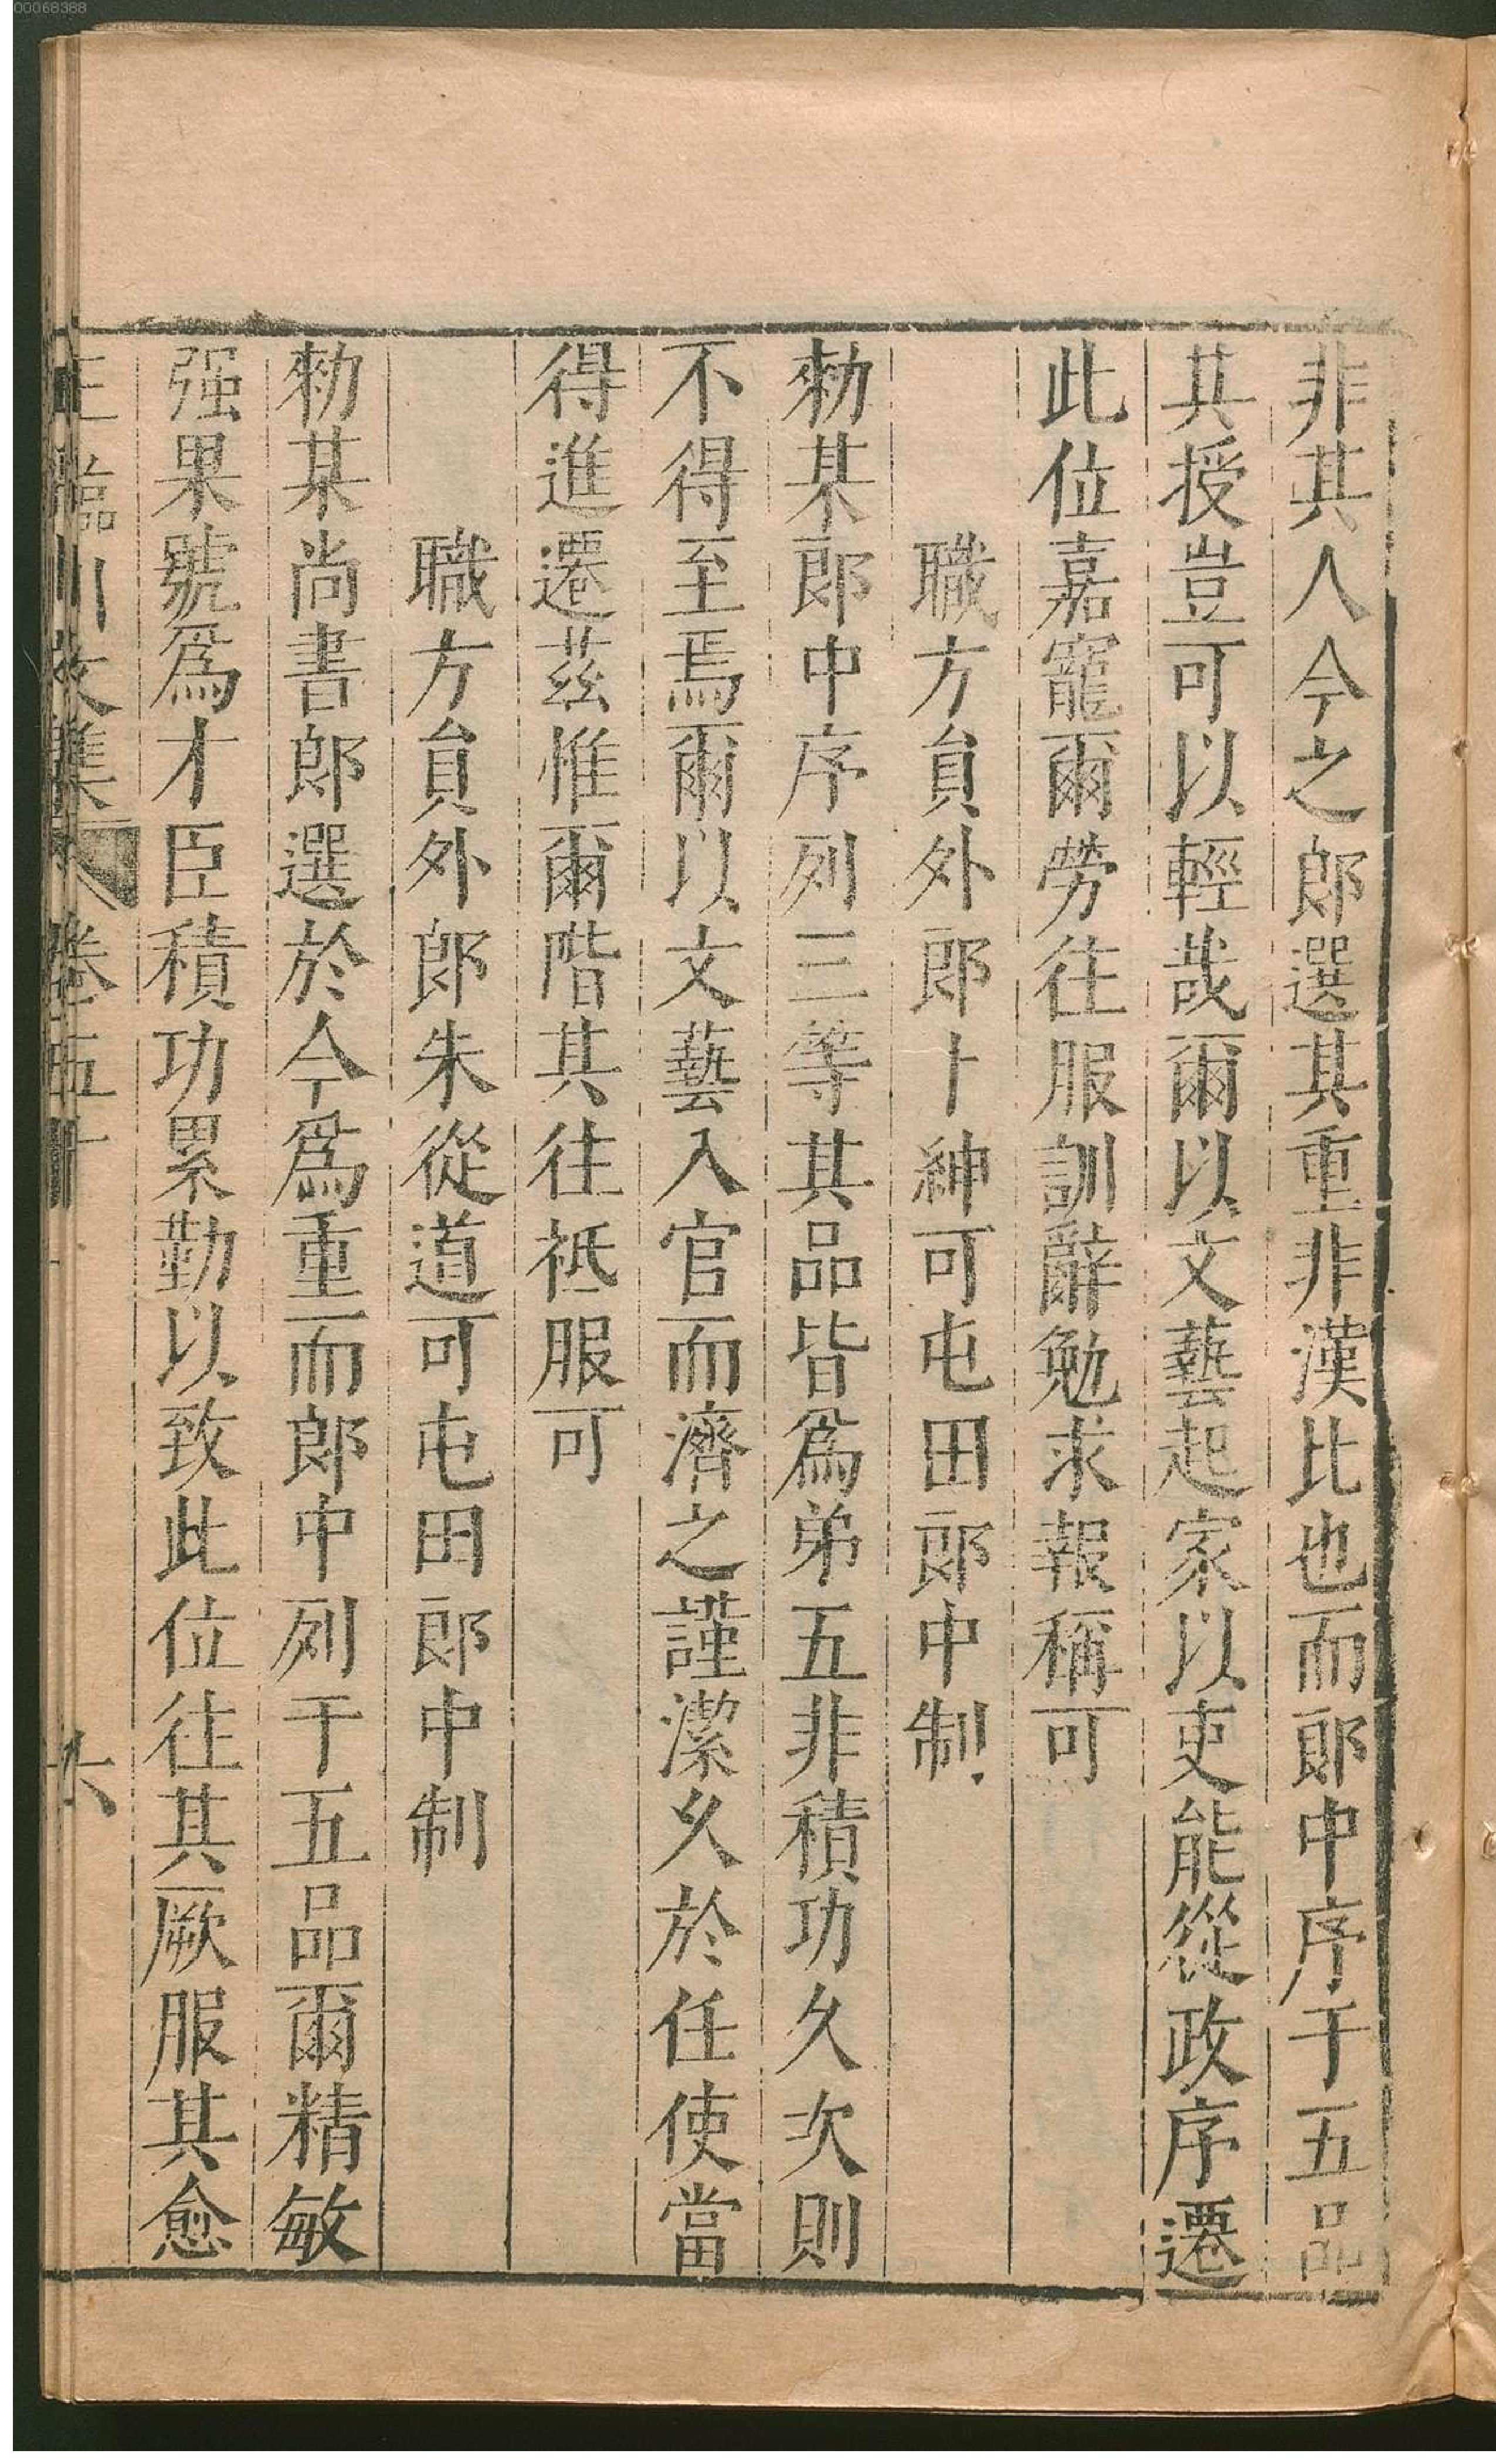 00068388
非其人今之郎選其重非漢比也而郎中序于五品
其授豈可以輕哉爾以文藝起家以吏能從政序遷
此位嘉寵爾勞往服訓辭勉求報稱可
職方員外郎卜紳可屯田郎中制
勑某郎中序列三等其品皆爲弟五非積功久次則
不得至焉爾以文藝入官而濟之謹潔久於任使當
得進遷茲惟爾階其往祗服可
職方員外郎朱從道可屯田郎中制
勑某尚書郎選於今爲重而郎中列于五品爾精敏
强果號爲才臣積功累勤以致此位往其厥服其愈
王臨川文集 卷五十